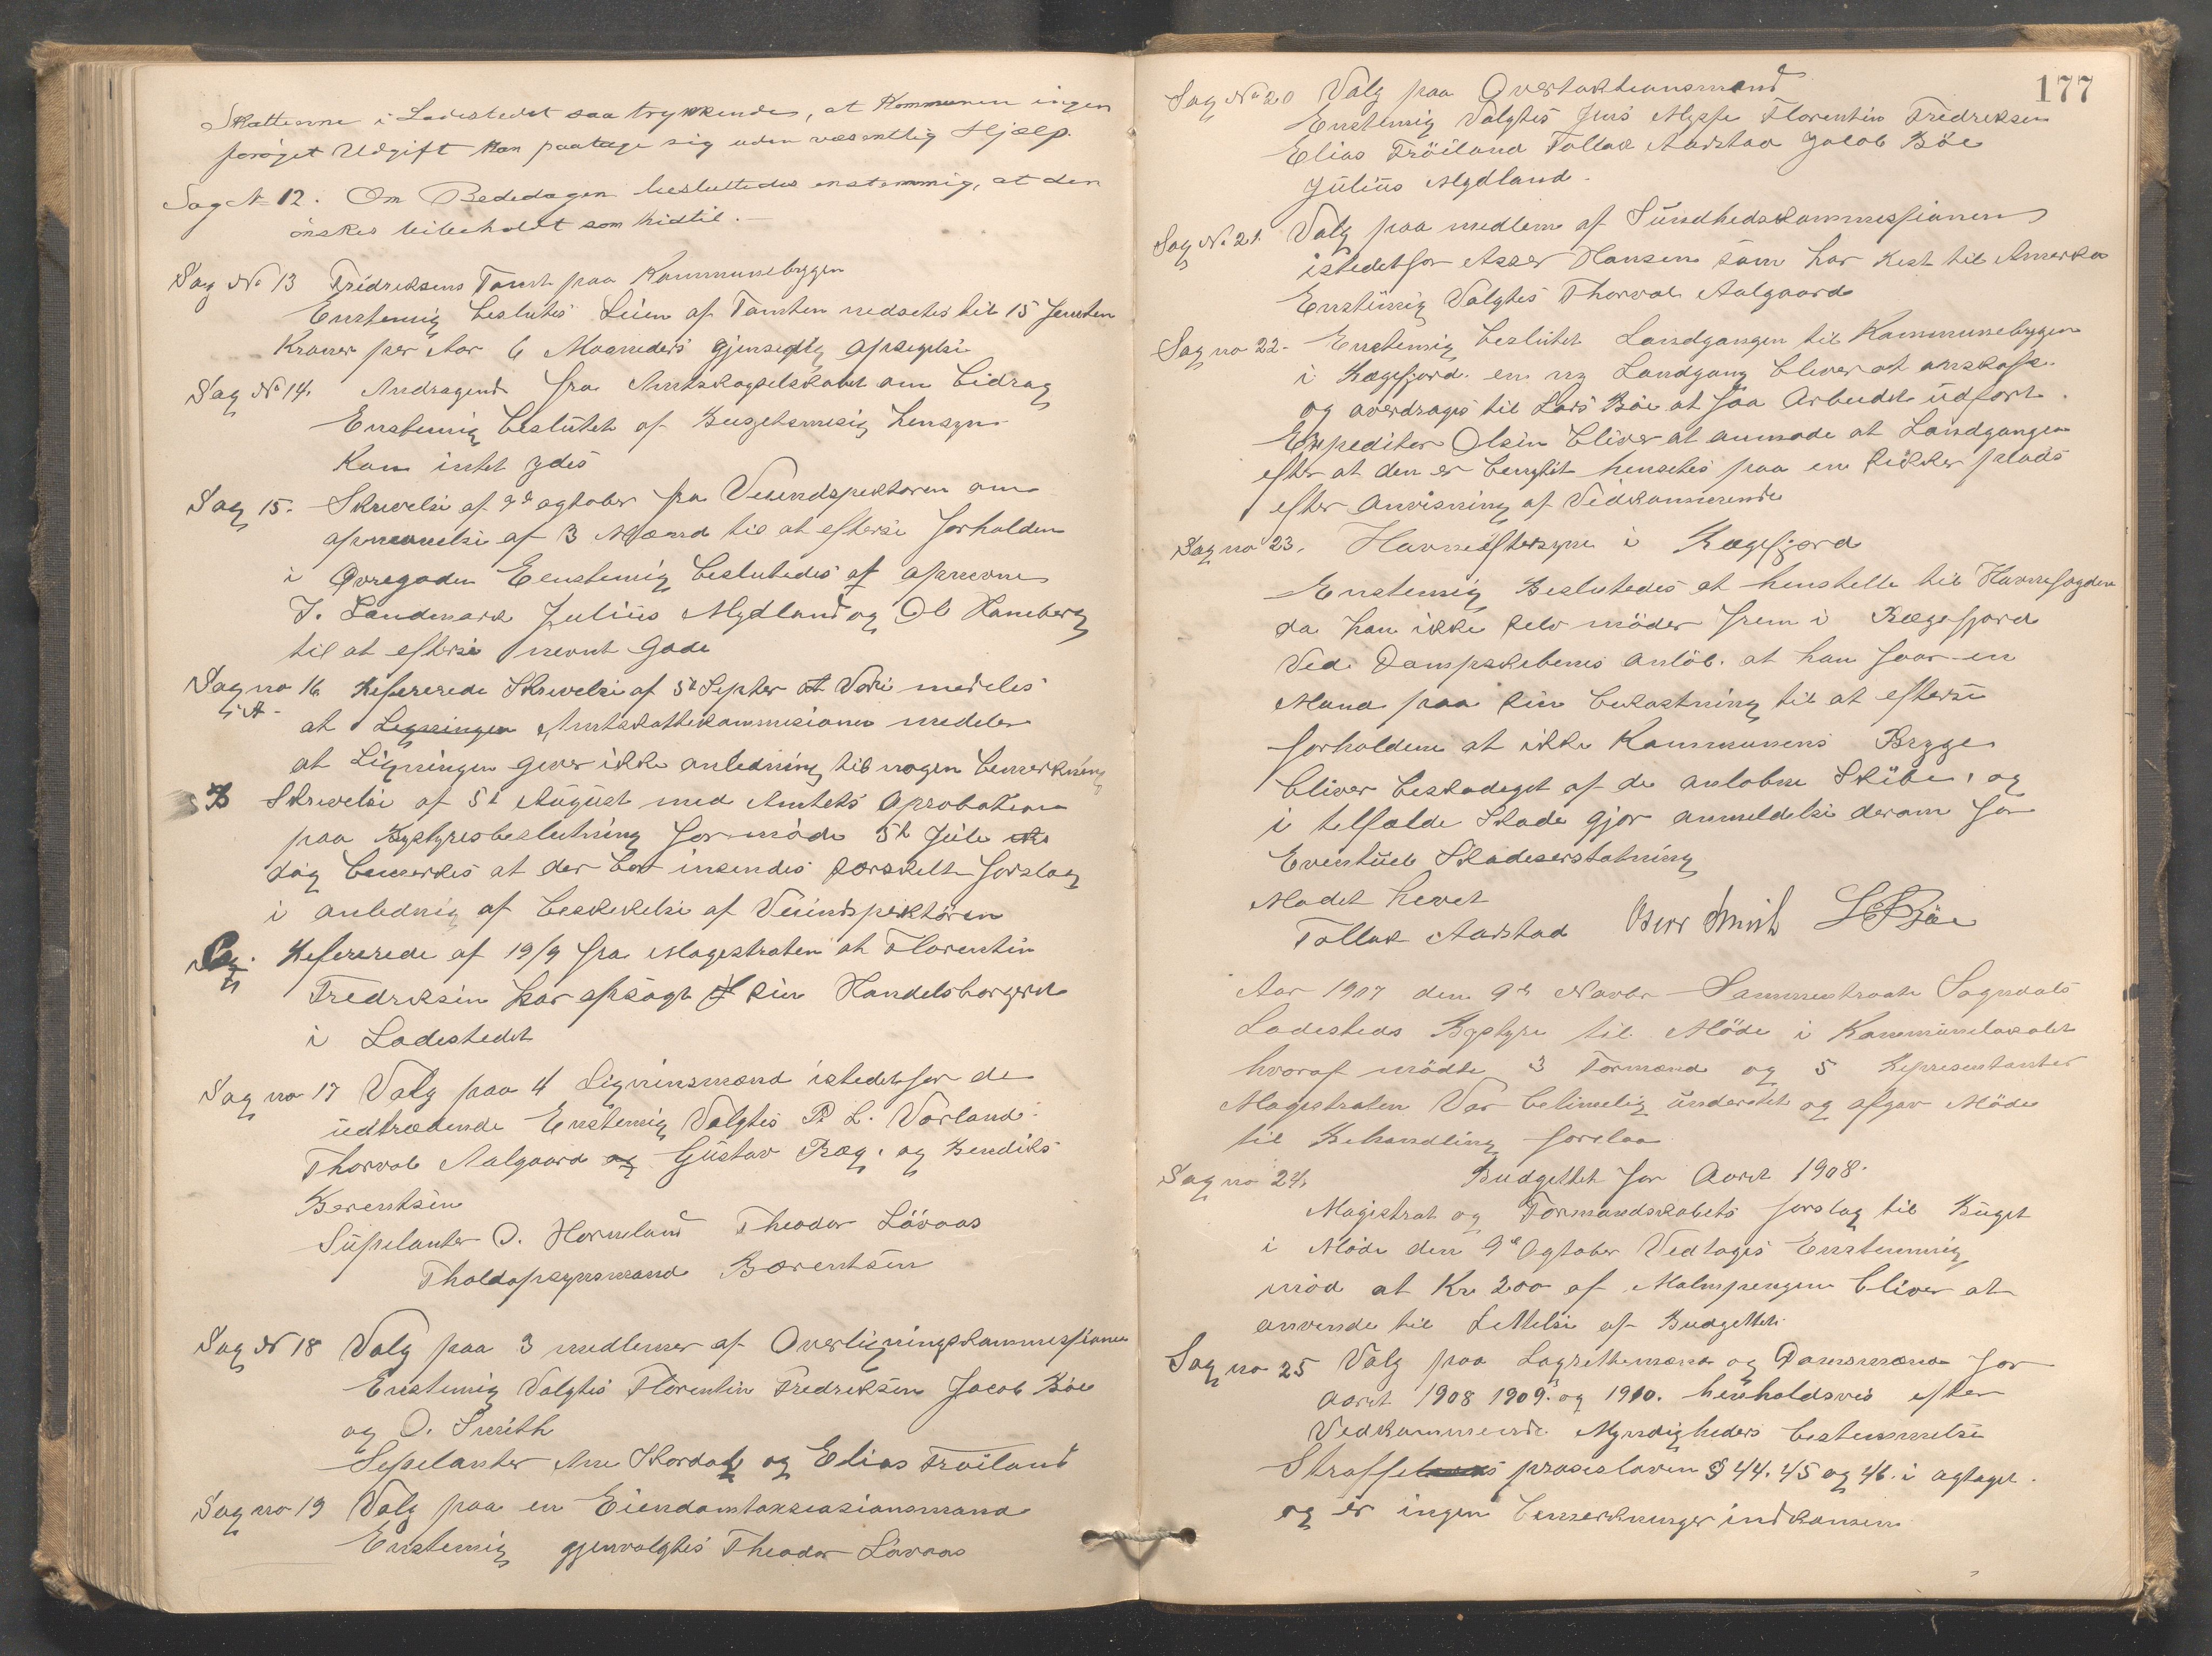 Skatterne i Ladestedet saa trykkende, at Kommunen ingen
forøget Udgift kan paatage sig uden væsentlig Hjælp.
Sag No 12. Om Bededagen besluttedes enstemmig, at den
önskes bibeholdt som hidtil.—
Sag No 13 Fridreksens Tomt paa Kommunebryggen
Enstemig beslutes Leien af Tomten nedsettes til 15 femten
Kroner per Aar 6 Maaneders gjensedig opsigelse
Sag No 14. Andragende fra Amtskogselskabet om bidrag
Enstemig beslutet af Bugetsmesig hensyn
kan intet ydes
Sag 15. Skrivelse af 9de ogtober fra Veiendspektøren om
opnevnelse af 3 Mænd til at efterse forholdene
i Øvregaden Eenstemig beslutedes at opnevne
T. Landmark Julius Mydland og Ol Hamberg
til at efterse nevnt Gade
Sag no 16 Refererede Skrivelse af 5te Septbr
A
at Legningen Amtskattekommisionen meddeler
at Ligningen giver ikke anledning til nogen bemerkning
B Skrivelse af 5te August med Amtets Aprobation
paa Bystyresbeslutning for møde 5te Juli
dog bemerkes at der bør insendes særskelt forslag
i anledning af beskikelse af Veiindspektøren
Refererede af 19/9 fra Magestraten at Florentin
Fredreksen har opsagt sin Handelsborgerret
i Ladestedet
Sag no 17 Valg paa 4 Ligninsmænd istedetfor de
udtrædende Enstemig Valgtes P. L. Vorland
Thorvald Aalgaard og Gustav Ræg. og Bendiks
Berentsen
Supelanter O. Horneland Theodor Lövaas
Tholdopsynsmand Børentsen
Sag N 18 Valg paa 3 medlemer af Overligningskommissionen
Enstemig Valgtes Florentin Fredreksen Jacob Böe
og O. Smith
Sepelanter Ane Skordal og Elias Tröiland
Sag no 19 Valg paa en Eiendomstakseasionsmand
Enstemig gjenvalgtes Theodor Lövaas
177
Sag No 20 Valg paa Overtaktionsmend
Enstemig Valgtes Jens Mysse Florentin Fredreksen
Elias Tröiland Tollak Aarstad Jacob Böe
Julius Mydland.
Sag No 21. Valg paa medlem af Sundhedskommissionen
istedetfor Asser Hansen som har rest til Amerka
Enstemig Valgtes Thorvald Aalgaard
Sag no 22. Enstemig beslutet Landgangen til Kommunebryggen
i Rægefjord. en ny Landgang bliver at anskafe.
og overdrages til Lars Böe at faa Arbeidet udført.
Expeditør Olsen bliver at anmode at Landgangen
efter at den er benyttet hensettes paa en sikker plads
efter Anvisning af Vedkommende
Sag no 23. Havneeftersyn i Rægefjord
Enstemig Beslutedes at henstelle til Havnefogden
da han ikke selv möder frem i Rægefjord
Ved Dampskibenes anlöb. at han faar en
Mand paa sin bekostning til at efterse
forholdene at ikke Kommunens Brygge
bliver beskadeget af de anlobne Skibe, og
i telfælde Skade gjør anmeldelse derom for
Eventuel Skadeserstatning
Mødet hevet
Tollak Aarstad Osw Smith L. Böe
Aar 1907 den 9de Novbr Sammentraate Sogndals
Ladesteds Bystyre til Möde i Kommunelokalet
hvoraf mödte 3 Formænd og 5 Representanter
Magestraten Var betimelig underettet og afgav Möde
til Behandling forelaa
Sag no 24. Budgettet for Aaret 1908.
Magistrat og Formandskabets forslag til Buget
i Möde den 9de Ogtober Vedtages Enstemmig
mod at Kr 200 af Malmpengene bliver at
anvende til Lettelse af Budgettet.
Sag no 25 Valg paa Lagrettemænd og Domsmænd for
Aaret 1908 1909. og 1910. henholdsvis efter
Vedkommende Myndigheders bestemmelse
Straffe prosesloven § 44. 45 og 46. i agtaget.
og er ingen bemerkninger indkommen